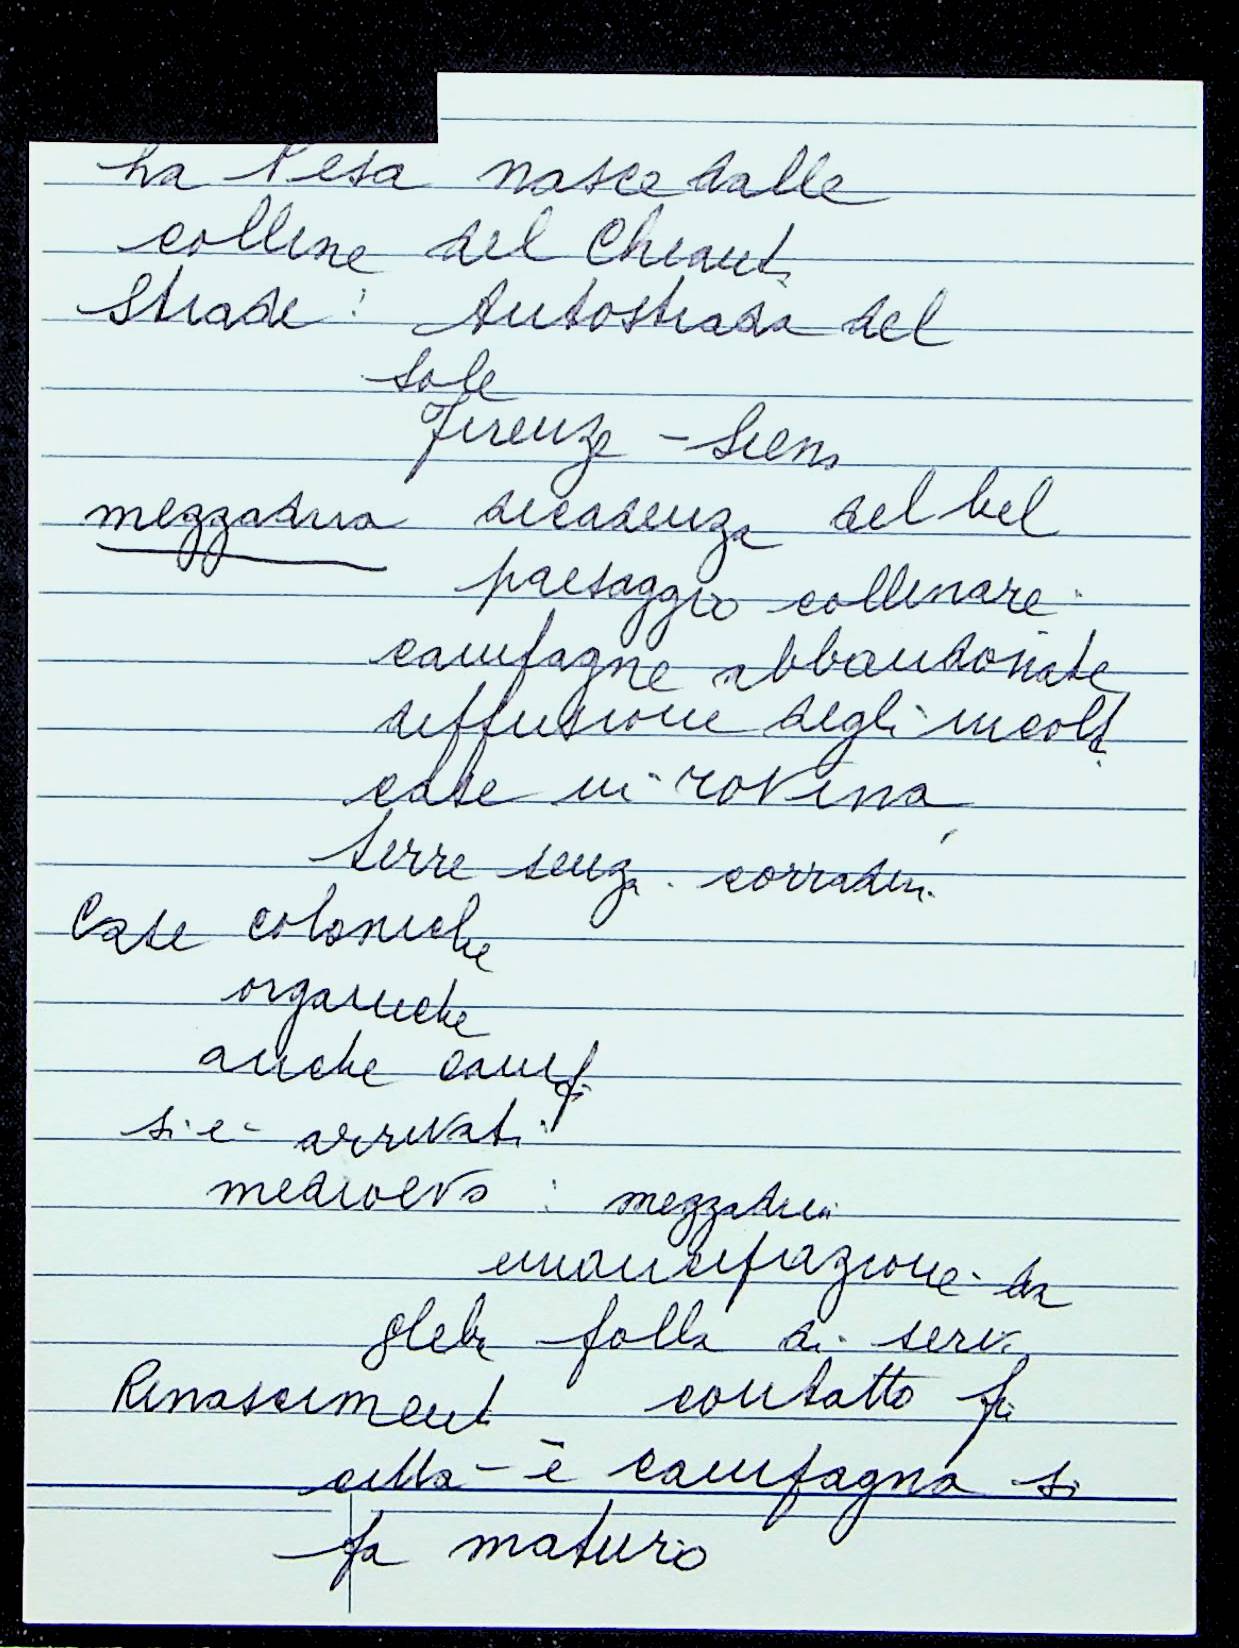 La Pesa nasce dalle
colline del Chianti
Strade: Autostrada del
Sole
Firenze - Siena
mezzadria decadenza del bel
paesaggio collinare
campagne abbandonate
diffusione degli incolti
case in rovina,
terre senza contadini
Case coloniche
organiche
anche campi
si è arrivati
medioevo : mezzadri
emancipazione da
gleba folla di servi
Rinasciment contatto fra
città - è campagna si
fa maturo